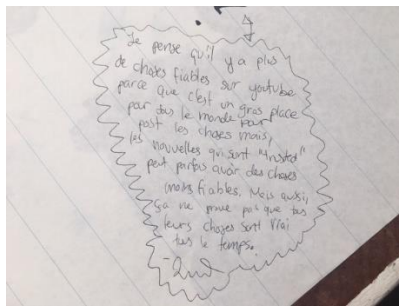 Je pense qu'il y a plus
de choses fiables sur youtube
parce que c'est un gros place
par tous le monde pour
post les choses mais,
les nouvelles qui sont "trusted"
peut parfois avoir des choses
moins fiables. Mais aussi,
ça ne pas que tous
leurs choses sont vrai
tous le temps.